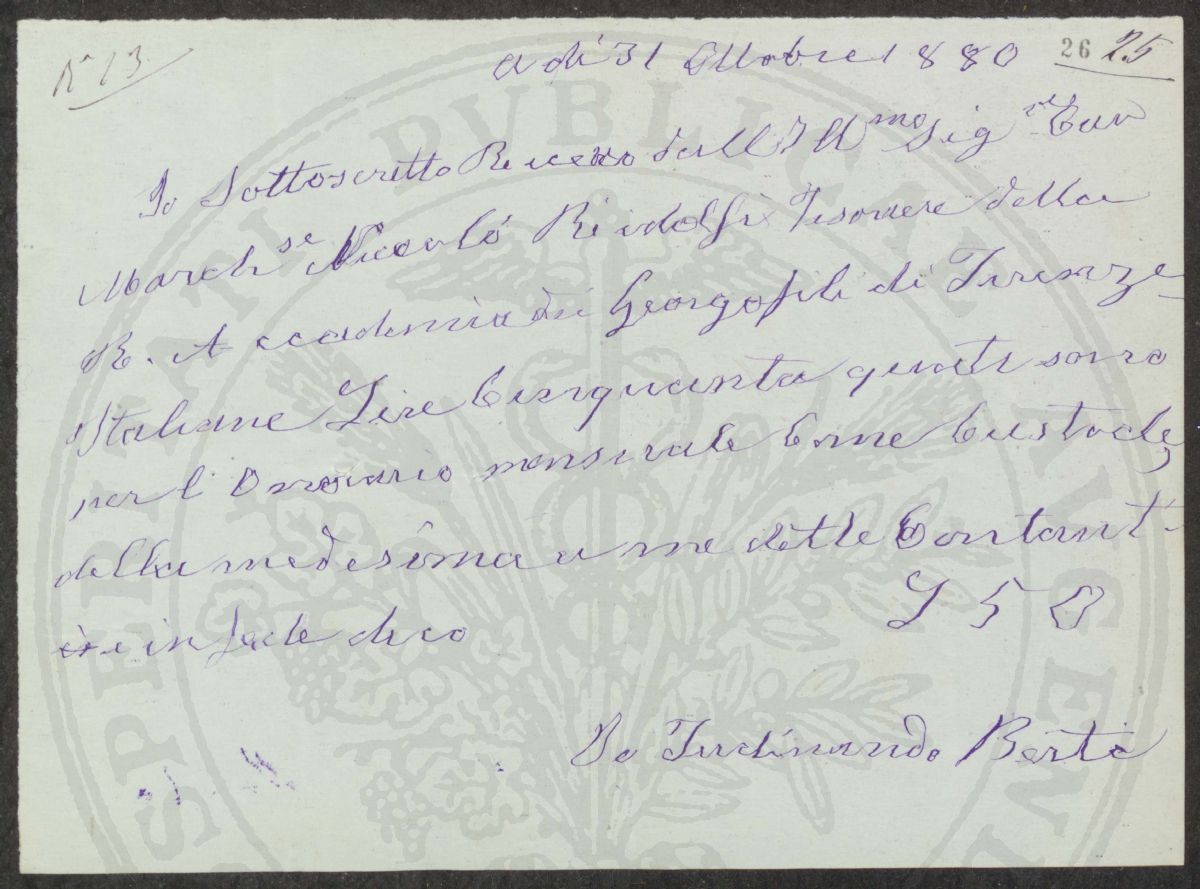 N° 13
a di 31 Ottobre 1880
26 25
Io Sottoscritto Ricevo dall Ill mo Sig re Cav
March se Niccolò Ridolfi Tesoriere della
R. Accademia dei Georgofili di Firenze
Italiane Lire Cinquanta queste sono
per l'Onorario mensuale Come Custode
della medesima a me dette Contanti
e in fede dico L 50
Io Ferdinando Berti
PUBLICAE